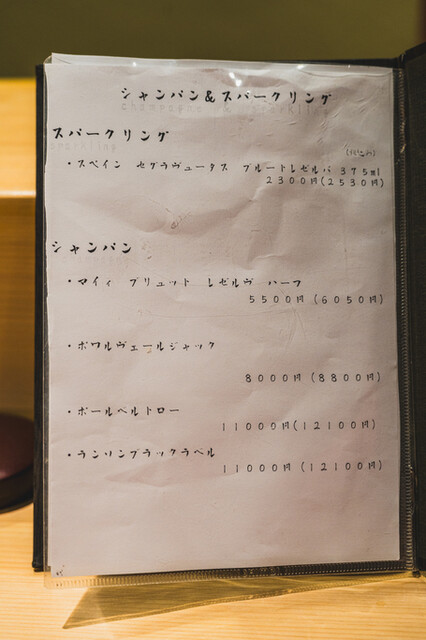 シャンパン&スパークリング
champagne & sparkling
スパークリング
sparkling
(税込み)
・スペイン セグラヴュータス ブルートレゼルバ 375ml
2300円(2530円)
シャンパン
・マイィ ブリュット レゼルヴ ハーフ
5500円 (6050円)
・ボワルヴェールジャック
8000円 (8800円)
・ポールベルトロー
11000円(12100円)
・ランソンブラックラベル
11000円 (12100円)